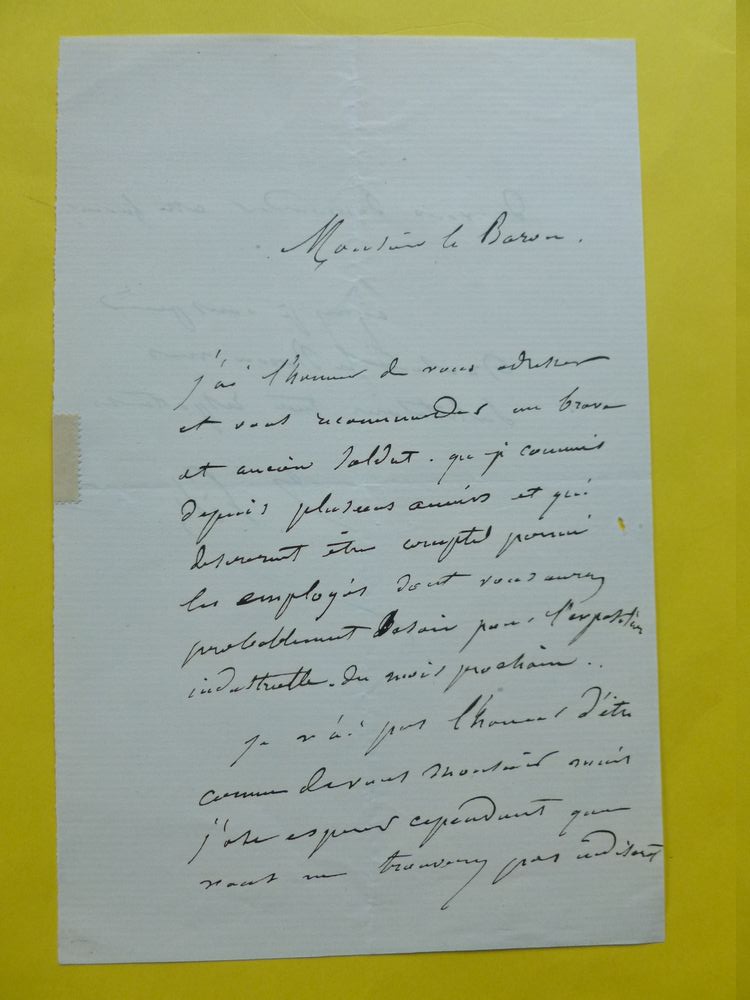 Monsieur le Baron.
j'ai l'honneur de vous adresser
et vous recommander un brave
et ancien soldat. que je connais
depuis plusieurs années et qui
désirerait être compté parmi
les employés dont vous aurez
probablement besoin pour l'exposition
industrielle du mois prochain..
je n'ai pas l'honneur d'être
connu de vous monsieur mais
j'ose espérer cependant que
vous ne trouverez pas indiscret